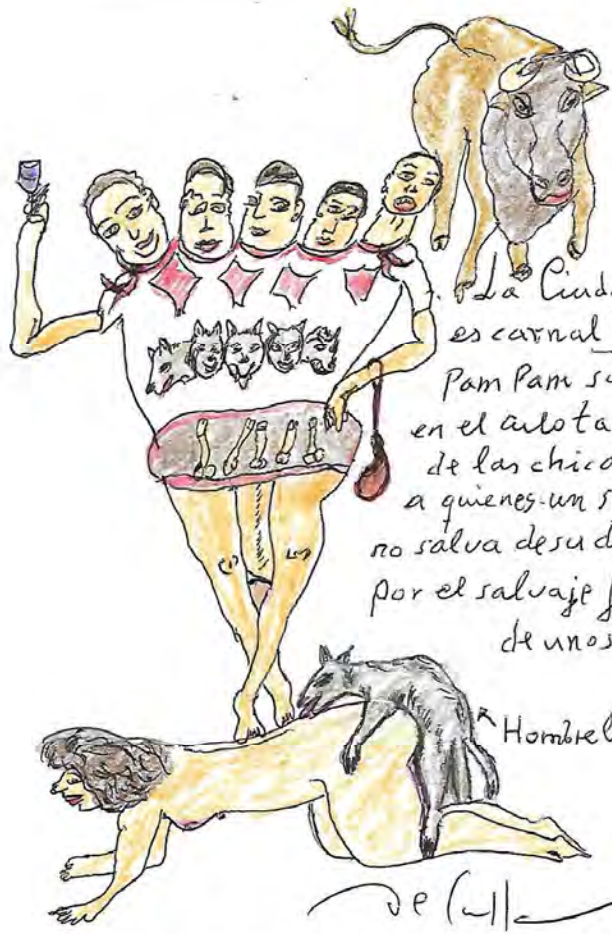 La Ciuda
es carnal
Pam Pam su
en el culo ta
de las chica
a quienes un s
no salva de su d
por el salvaje
de unos
Hombrel
de Culla